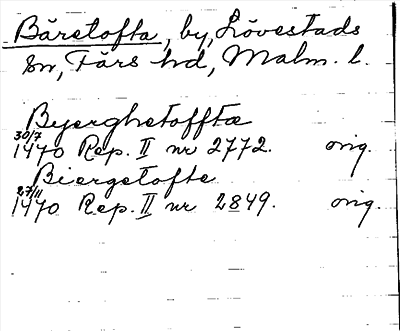 Bäretofta, by, Lövestads
sn, Färs hd, Malm. l.
Byerghetofftæ
30/7
1470 Rep. II nr 2772. orig.
Biergetofte
27/11
1470 Rep. II nr 2849. orig.